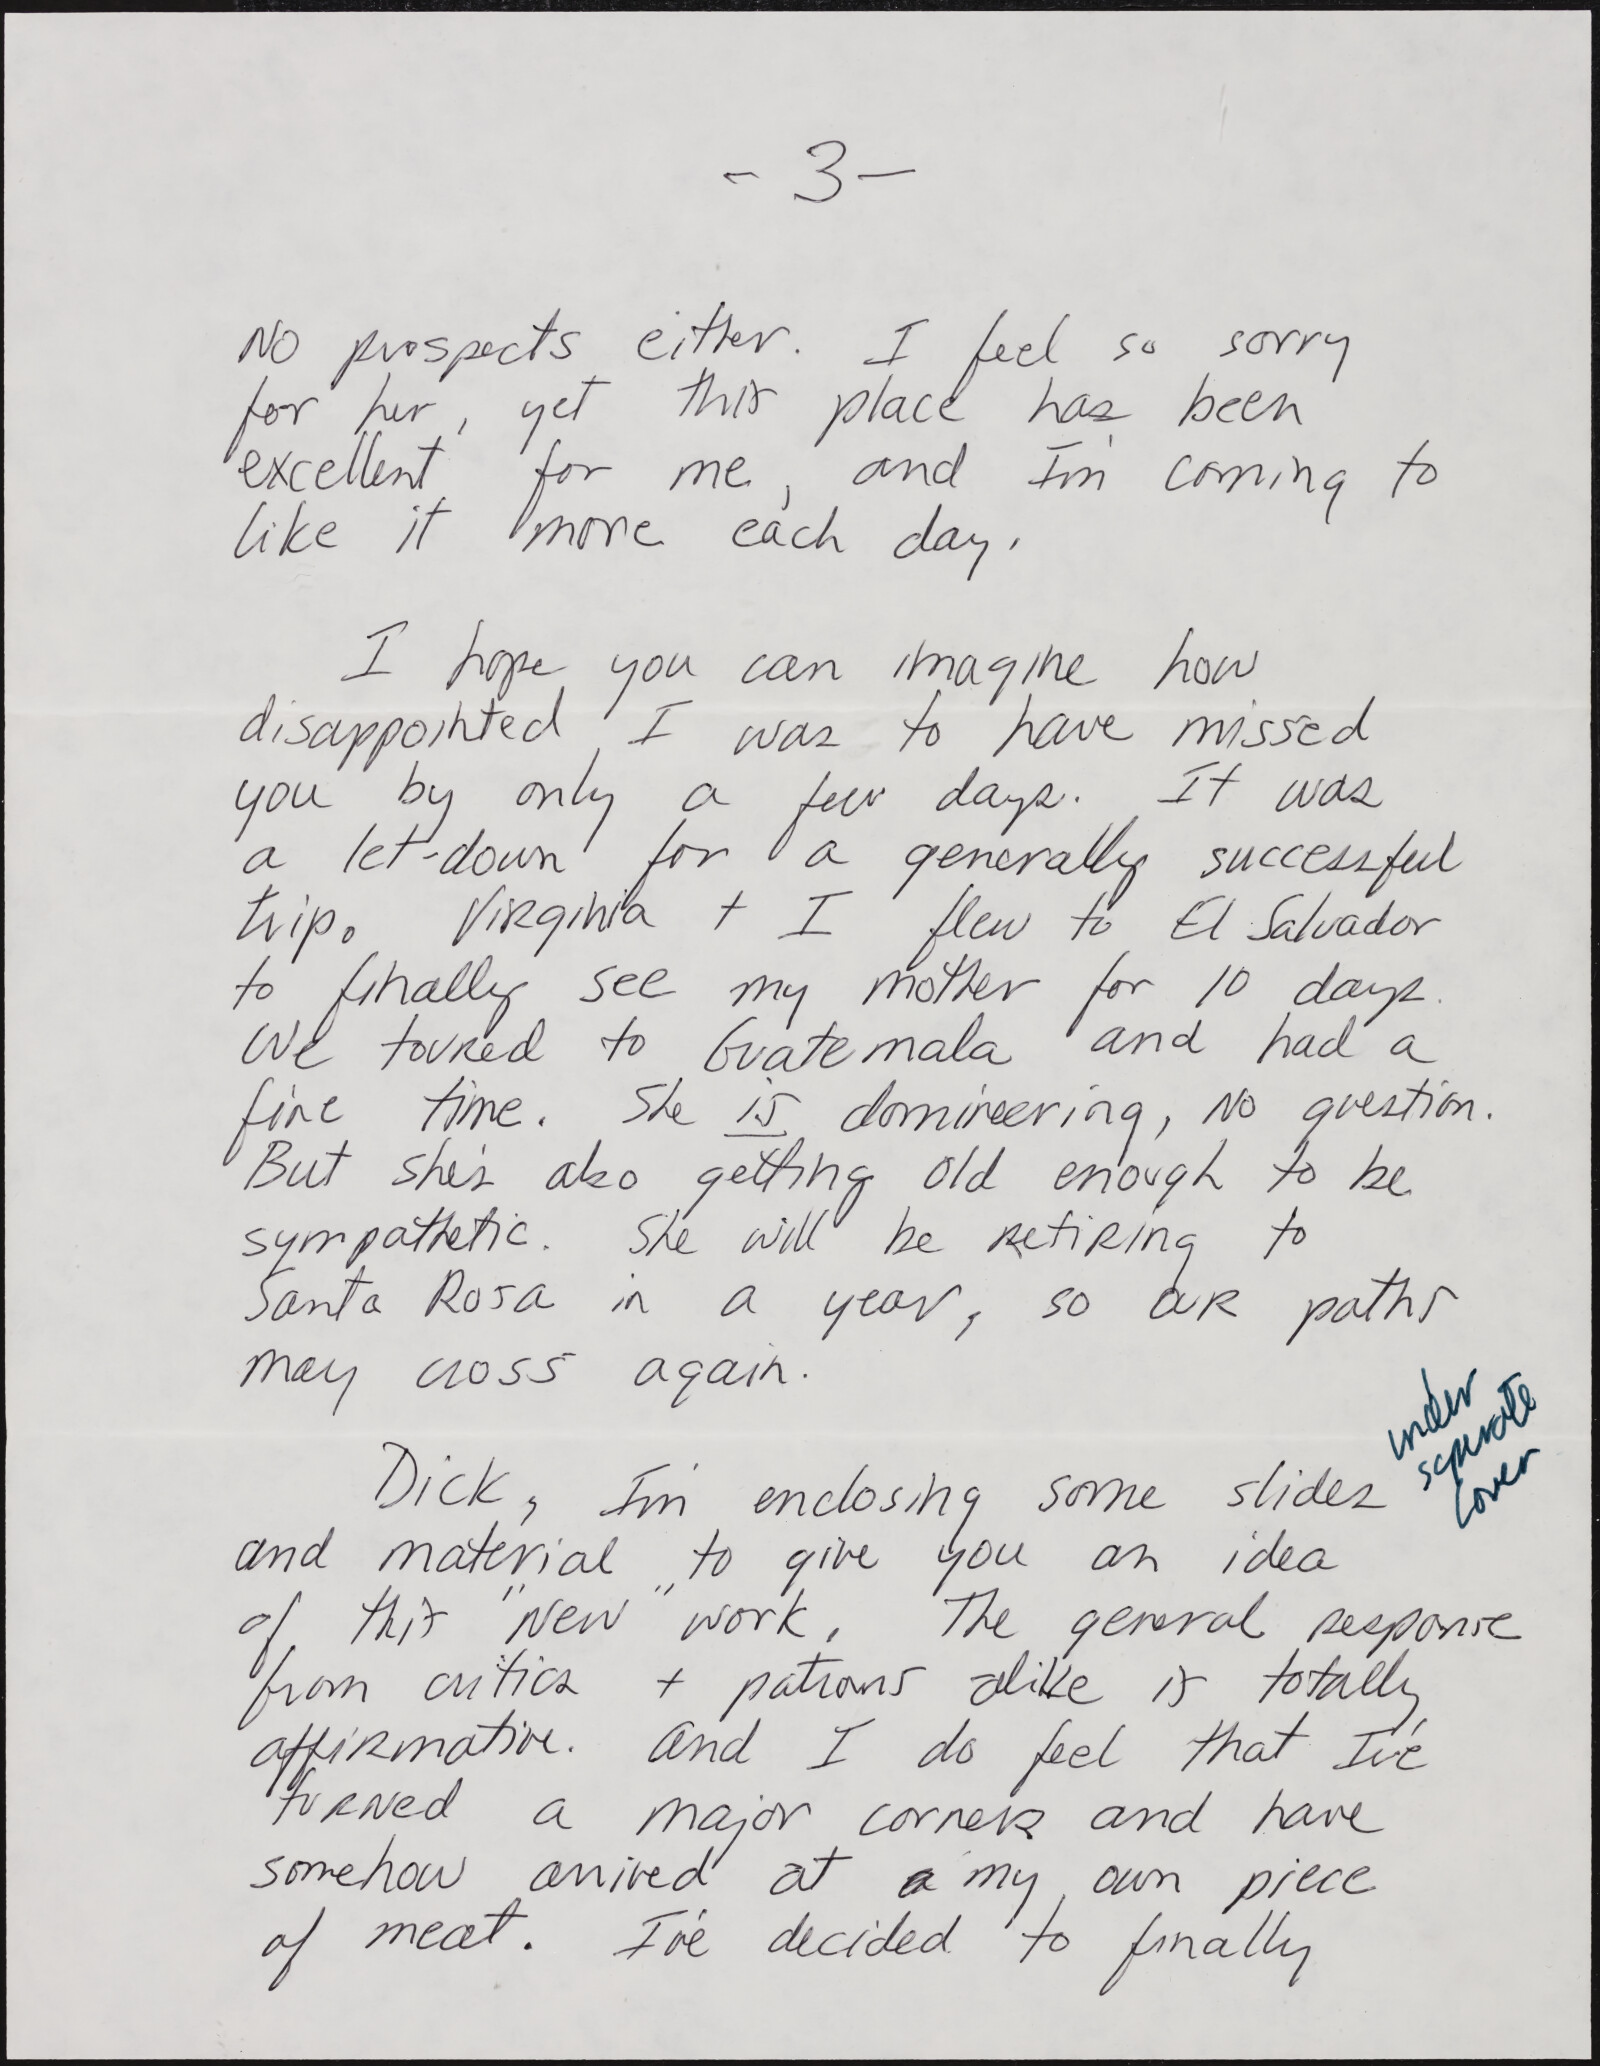 - 3 -
No prospects either. I feel so sorry
for her, yet this place has been
excellent for me, and I'm coming to
like it more each day.
I hope you can imagine how
disappointed I was to have missed
you by only a few days. It was
a let-down for a generally successful
trip. Virginia + I flew to El Salvador
to finally see my mother for 10 days.
We toured to Guatemala and had a
fine time. She is domineering, no question.
But she's also getting old enough to be
sympathetic. She will be retiring to
Santa Rosa in a year, so our paths
may cross again.
Dick, I'm enclosing some slides
under
separate
cover
and material to give you an idea
of this "new" work. The general response
from critics + patrons alike is totally
affirmative. And I do feel that I've
turned a major corner and have
somehow arrived at my own piece
of meat. I've decided to finally